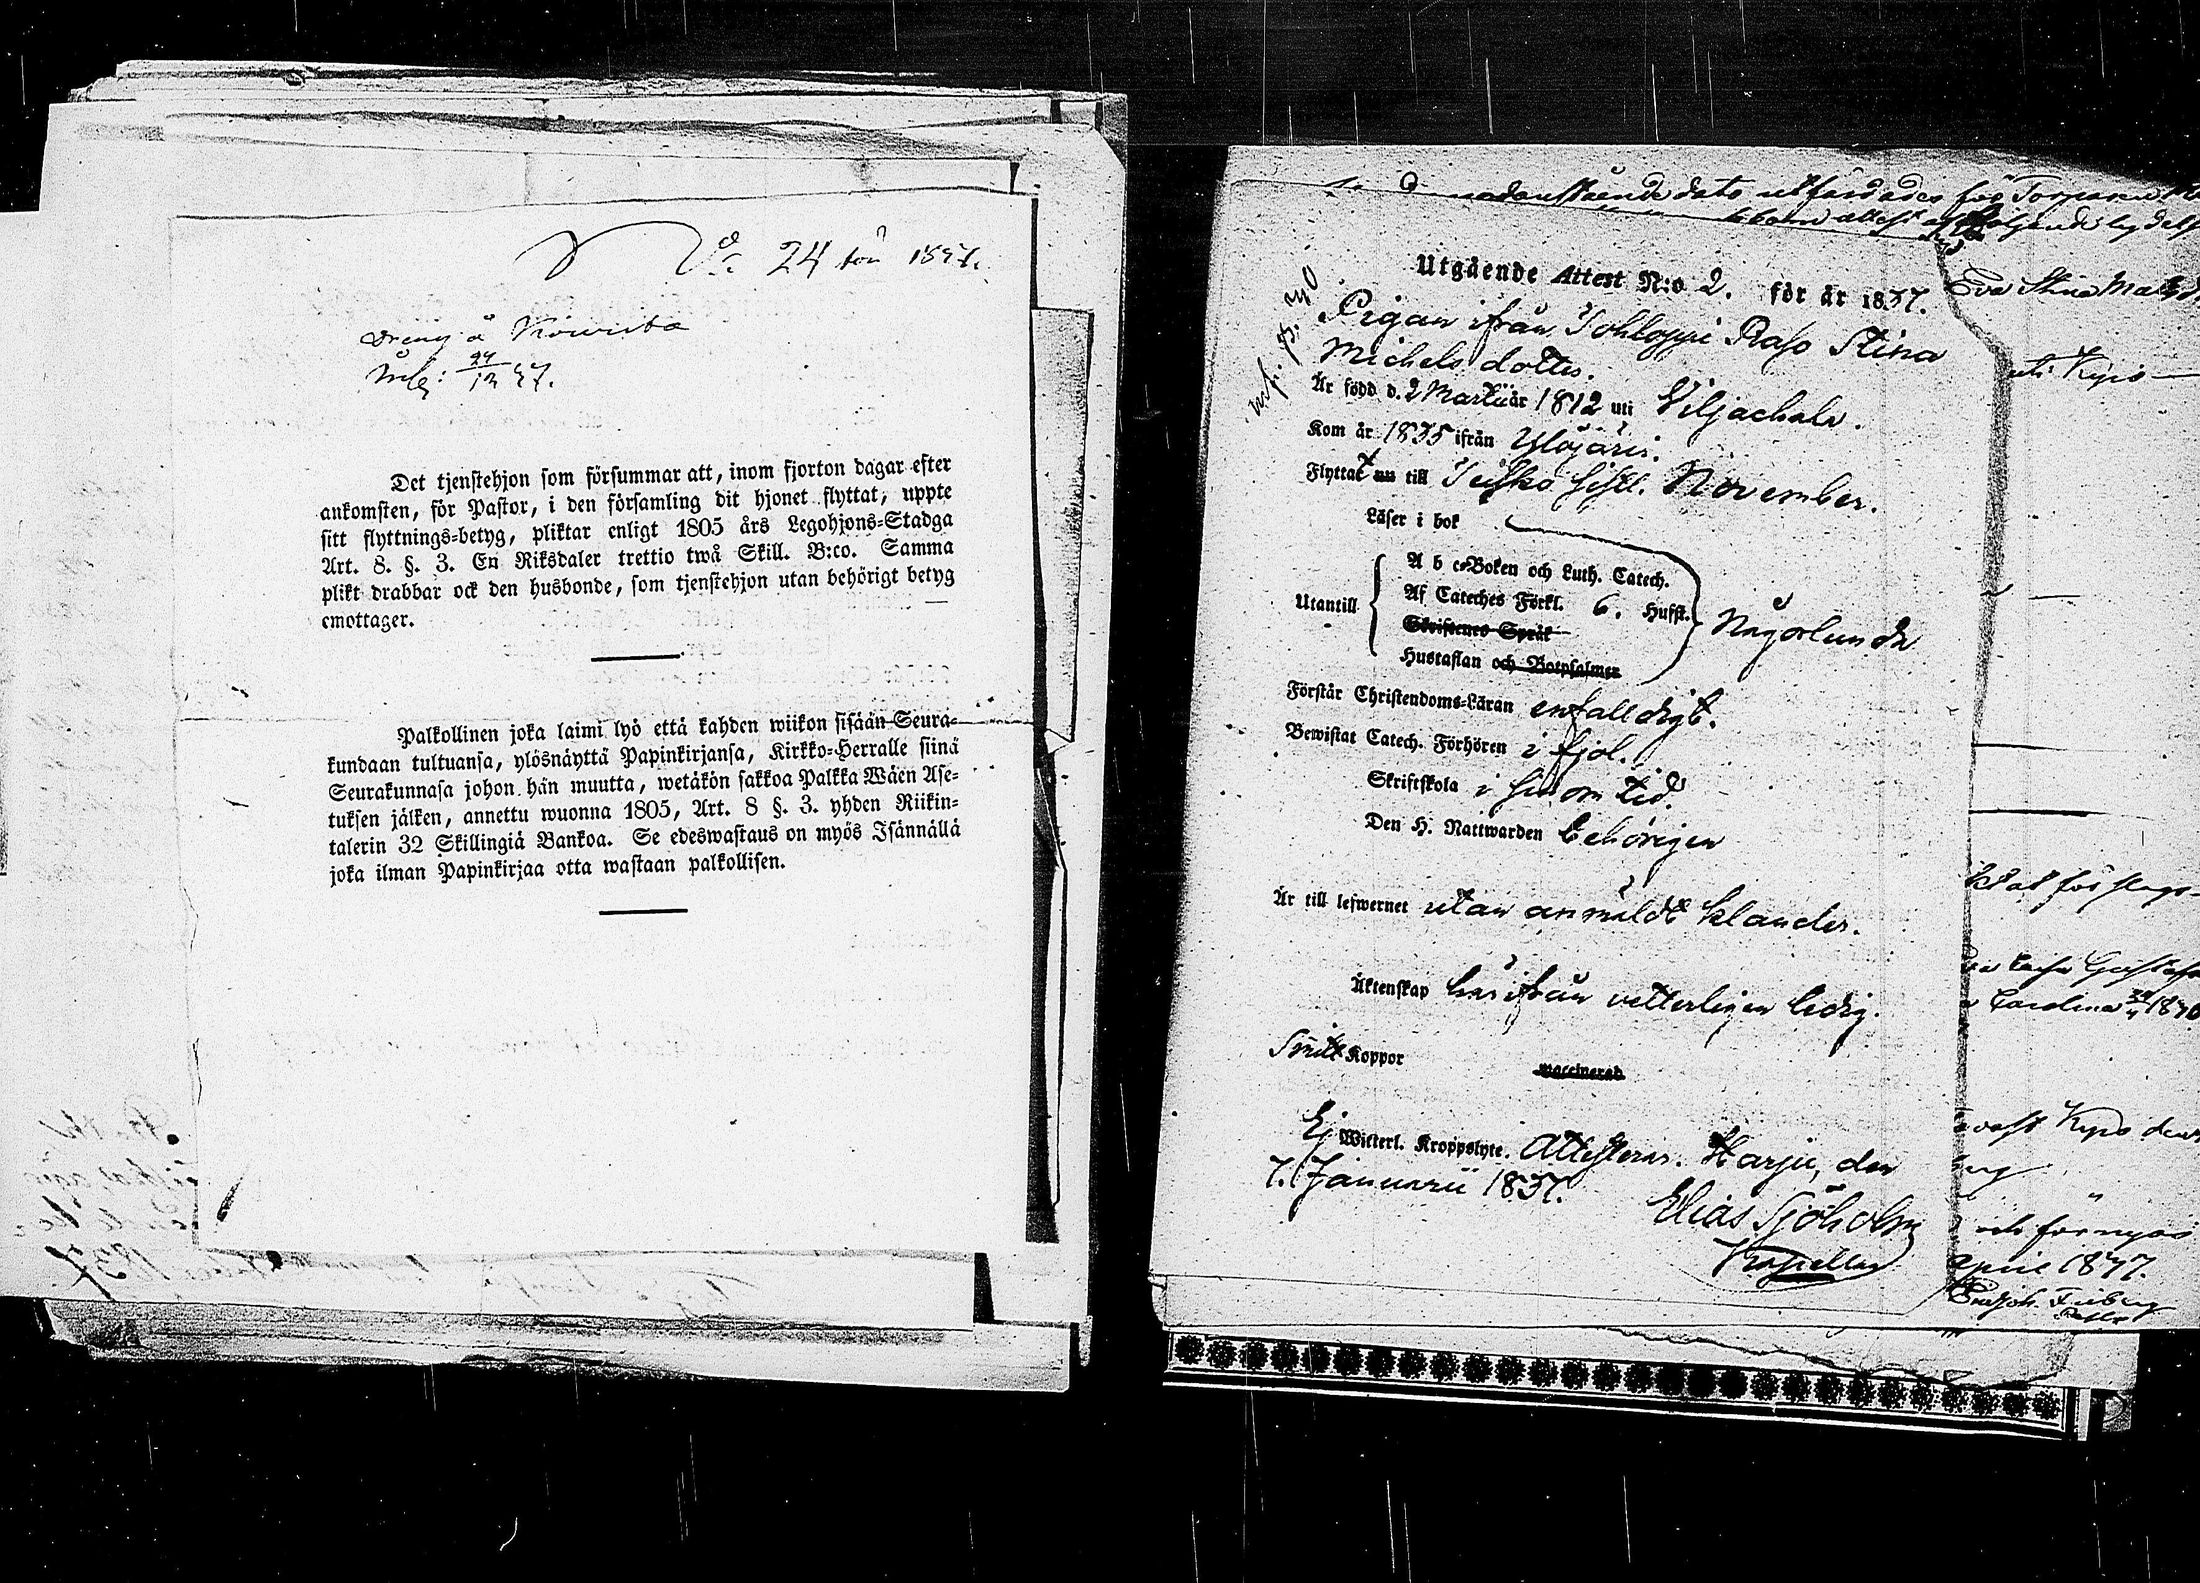 N:o 24 för 1847.
Dreng å
Det tjenstehjon som försummar att, inom fjorton dagar efter
ankomsten, för Pastor, i den församling dit hjonet flyttat, uppte
sitt flyttnings=betyg, pliktar enligt 1805 års Legohjons=Stadga
Art. 8. §. 3. En Riksdaler trettio twå Skill. B:co. Samma
plikt drabbar ock den husbonde, som tjenstehjon utan behörigt betyg
emottager.
Palkollinen joka laimi lyö että kahden wiikon sisään Seura=
kundaan tultuansa, ylösnäyttä Papinkirjansa, Kirkko=Herralle siinä
Seurakunnasa johon hän muutta, wetäkön sakkoa Palkka Wäen Ase=
tuksen jälken, annettu wuonna 1805, Art. 8 §. 3. yhden Riikin=
talerin 32 Skillingiä Bankoa. Se edeswastaus on myös Isännällä
joka ilman Papinkirjaa otta wastaan palkollisen.
nedanstående dato utfärdades för Torparen
attest af följande lydelse
Utgående Attest N:o 2. för år 1837.
Pigan ifrån Tohloppi Raso Stina
Michelsdotter.
Är född d. 2 Martii år 1812 uti Viljachala.
Kom år 1835 ifrån Ylöjärvi.
Flyttat nu till Teisko sistl. November.
Läser i bok
A b c=Boken och Luth. Catech.
Utantill Af Cateches Förkl. 6. Hufst. Någorlunda
Skriftenes Språk
Hustaflan och Botpsalmer
Förstår Christendoms=Läran enfaldigt.
Bewistat Catech. Förhören i fjol.
Skriftskola i sinom tid.
Den H. Nattwarden behörigen
Är till lefwernet utan anmäldt klander.
Äktenskap härifrån vetterligen ledig.
Koppor waccinerad
Ej Witterl. Kroppslyte. Attesterar. Harju, den
7. Januarii 1837.
Elias Sjöholm
Kapellan
Eva Stina
uti Kyrö
Carolina
Kyrö den
och förnyas
April 1847.